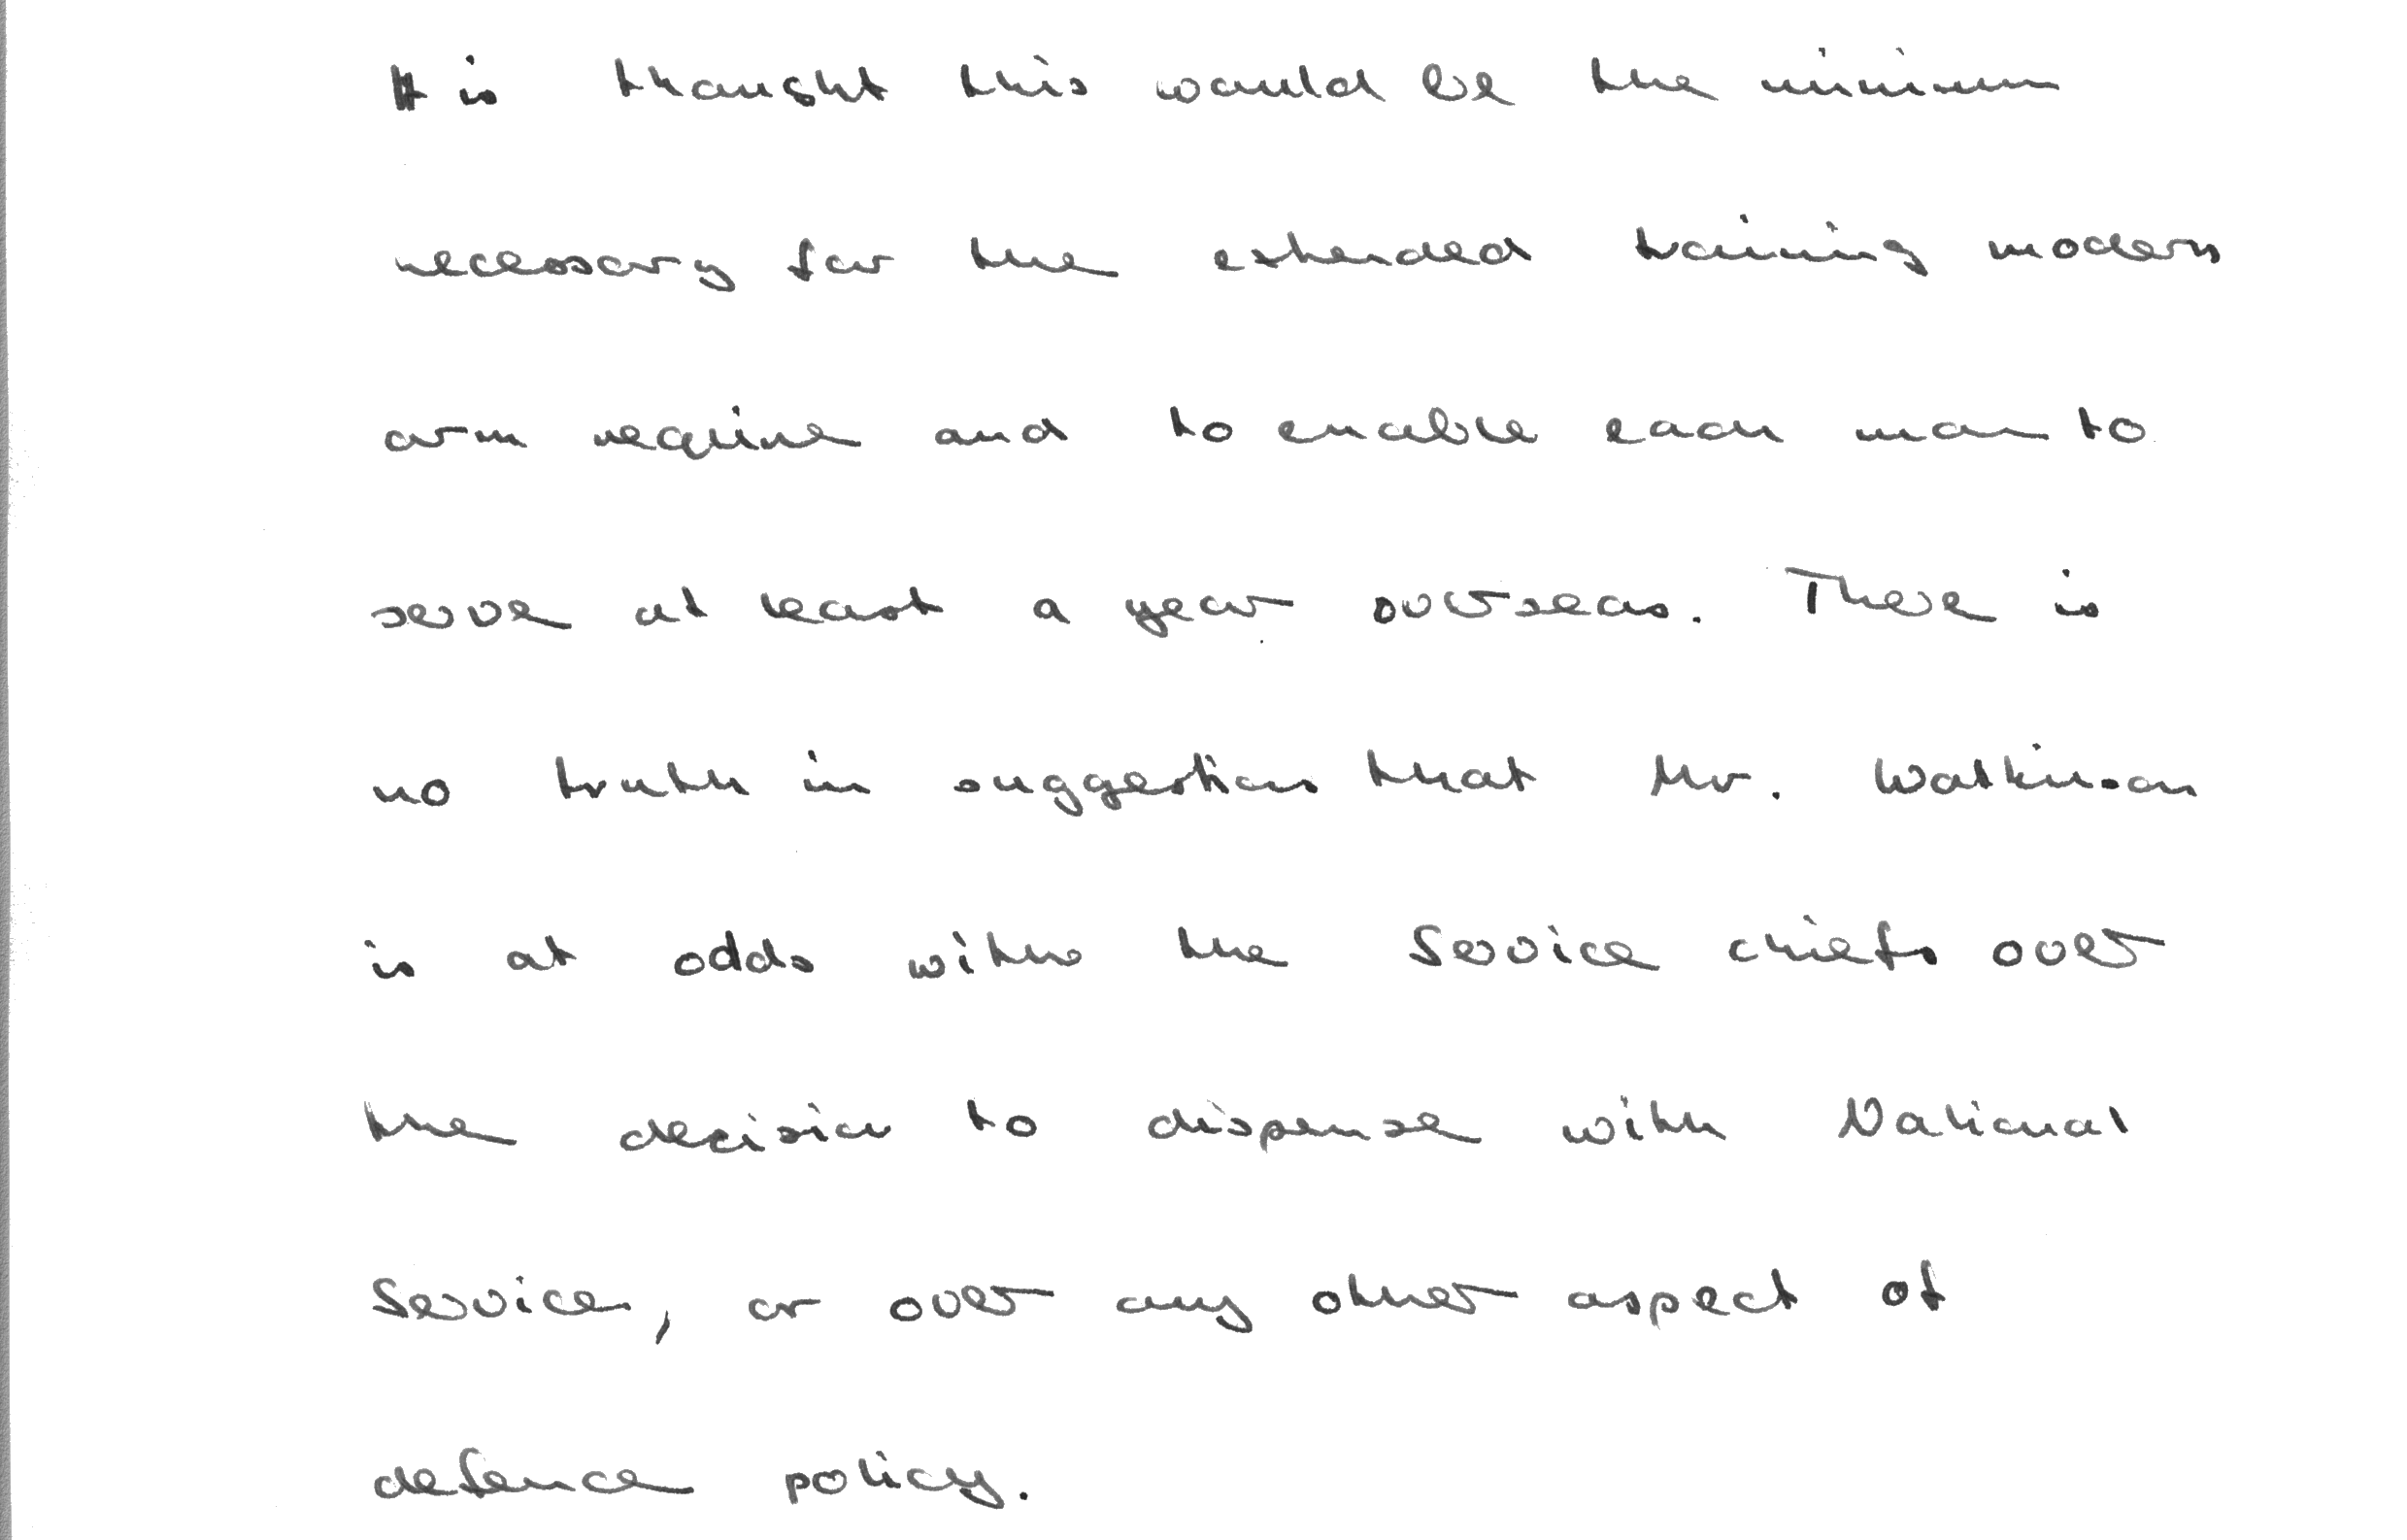 It is thought this would be the minimum
necessary for the extended training modern
arm require and to enable each man to
serve at least a year overseas. There is
no truth in suggestions that Mr. Watkinson
is at odds with the Service chiefs over
the decision to dispense with National
Service, or over any other aspect of
defence policy.